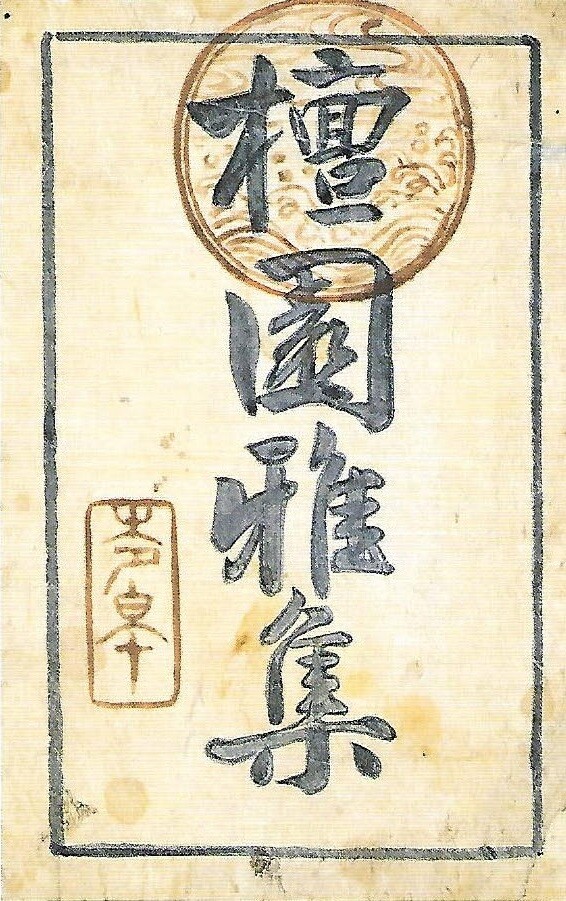 檀園雅集